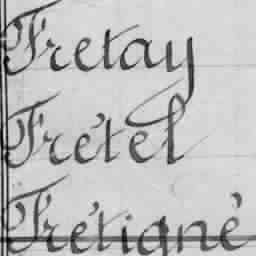 Fretay
Frétel
Frétigné